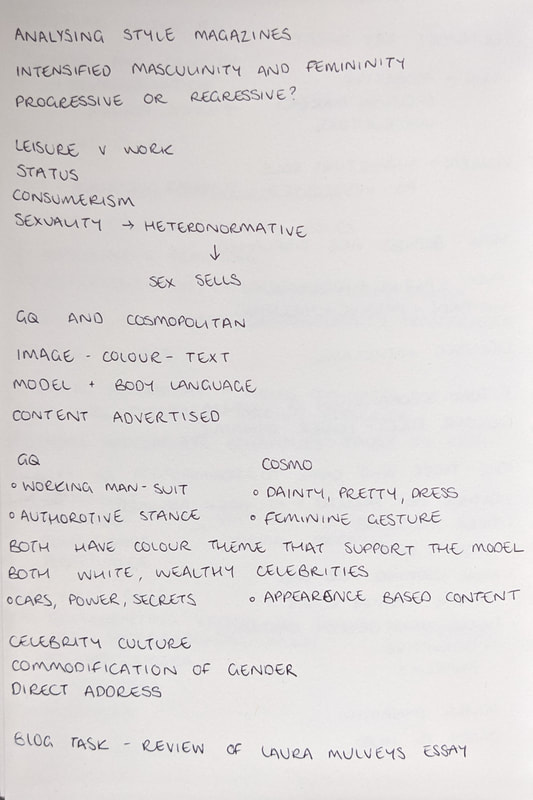 ANALYSING STYLE MAGAZINES
INTENSIFIED MASCULINITY AND FEMININITY
PROGRESSIVE OR REGRESSIVE?
LEISURE V WORK
STATUS
CONSUMERISM
SEXUALITY → HETERONORMATIVE
↓
SEX SELLS
GQ AND COSMOPOLITAN
IMAGE - COLOUR - TEXT
MODEL + BODY LANGUAGE
CONTENT ADVERTISED
GQ
◦ WORKING MAN - SUIT
◦ AUTHOROTIVE STANCE
COSMO
◦ DAINTY, PRETTY, DRESS
◦ FEMININE GESTURE
BOTH HAVE COLOUR THEME THAT SUPPORT THE MODEL
BOTH WHITE, WEALTHY CELEBRITIES
◦ CARS, POWER, SECRETS
◦ APPEARENCE BASED CONTENT
CELEBRITY CULTURE
COMMODIFICATION OF GENDER
DIRECT ADDRESS
BLOG TASK - REVIEW OF LAURA MULVEYS ESSAY